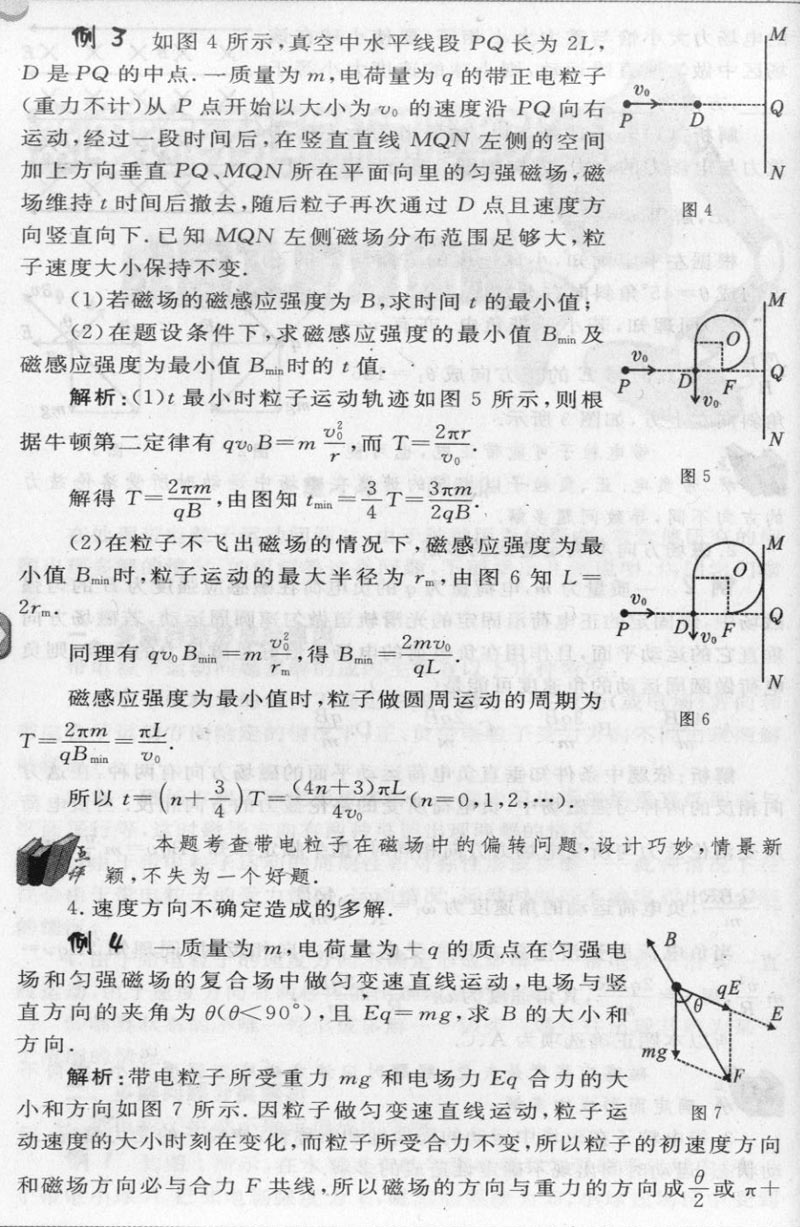 例 3 如图 4 所示,真空中水平线段 PQ 长为 2L,
D 是 PQ 的中点.一质量为 m,电荷量为 q 的带正电粒子
(重力不计)从 P 点开始以大小为 v₀ 的速度沿 PQ 向右
运动,经过一段时间后,在竖直直线 MQN 左侧的空间
加上方向垂直 PQ、MQN 所在平面向里的匀强磁场,磁
场维持 t 时间后撤去,随后粒子再次通过 D 点且速度方
向竖直向下.已知 MQN 左侧磁场分布范围足够大,粒
子速度大小保持不变.
M
v₀
P D Q
N
图 4
(1)若磁场的磁感应强度为 B,求时间 t 的最小值;
(2)在题设条件下,求磁感应强度的最小值 Bmin 及
磁感应强度为最小值 Bmin时的 t 值.
解析:(1)t 最小时粒子运动轨迹如图 5 所示,则根
据牛顿第二定律有 qv₀B=m v₀²/r,而 T=2πr/v₀.
解得 T=2πm/qB,由图知 tmin=3/4 T=3πm/2qB.
M
O
v₀
P D F Q
v₀
N
图 5
(2)在粒子不飞出磁场的情况下,磁感应强度为最
小值 Bmin时,粒子运动的最大半径为 rm,由图 6 知 L=
2rm.
同理有 qv₀Bmin=m v₀²/rm,得 Bmin=2mv₀/qL.
磁感应强度为最小值时,粒子做圆周运动的周期为
T=2πm/qBmin=πL/v₀.
M
O
v₀
P D F Q
v₀
N
图 6
所以 t=(n+3/4)T=(4n+3)πL/4v₀(n=0,1,2,…).
点评 本题考查带电粒子在磁场中的偏转问题,设计巧妙,情景新
颖,不失为一个好题.
4.速度方向不确定造成的多解.
例 4 一质量为 m,电荷量为+q 的质点在匀强电
场和匀强磁场的复合场中做匀变速直线运动,电场与竖
直方向的夹角为 θ(θ<90°),且 Eq=mg,求 B 的大小和
方向.
B
qE
θ
E
mg
F
图 7
解析:带电粒子所受重力 mg 和电场力 Eq 合力的大
小和方向如图 7 所示.因粒子做匀变速直线运动,粒子运
动速度的大小时刻在变化,而粒子所受合力不变,所以粒子的初速度方向
和磁场方向必与合力 F 共线,所以磁场的方向与重力的方向成 θ/2 或 π+